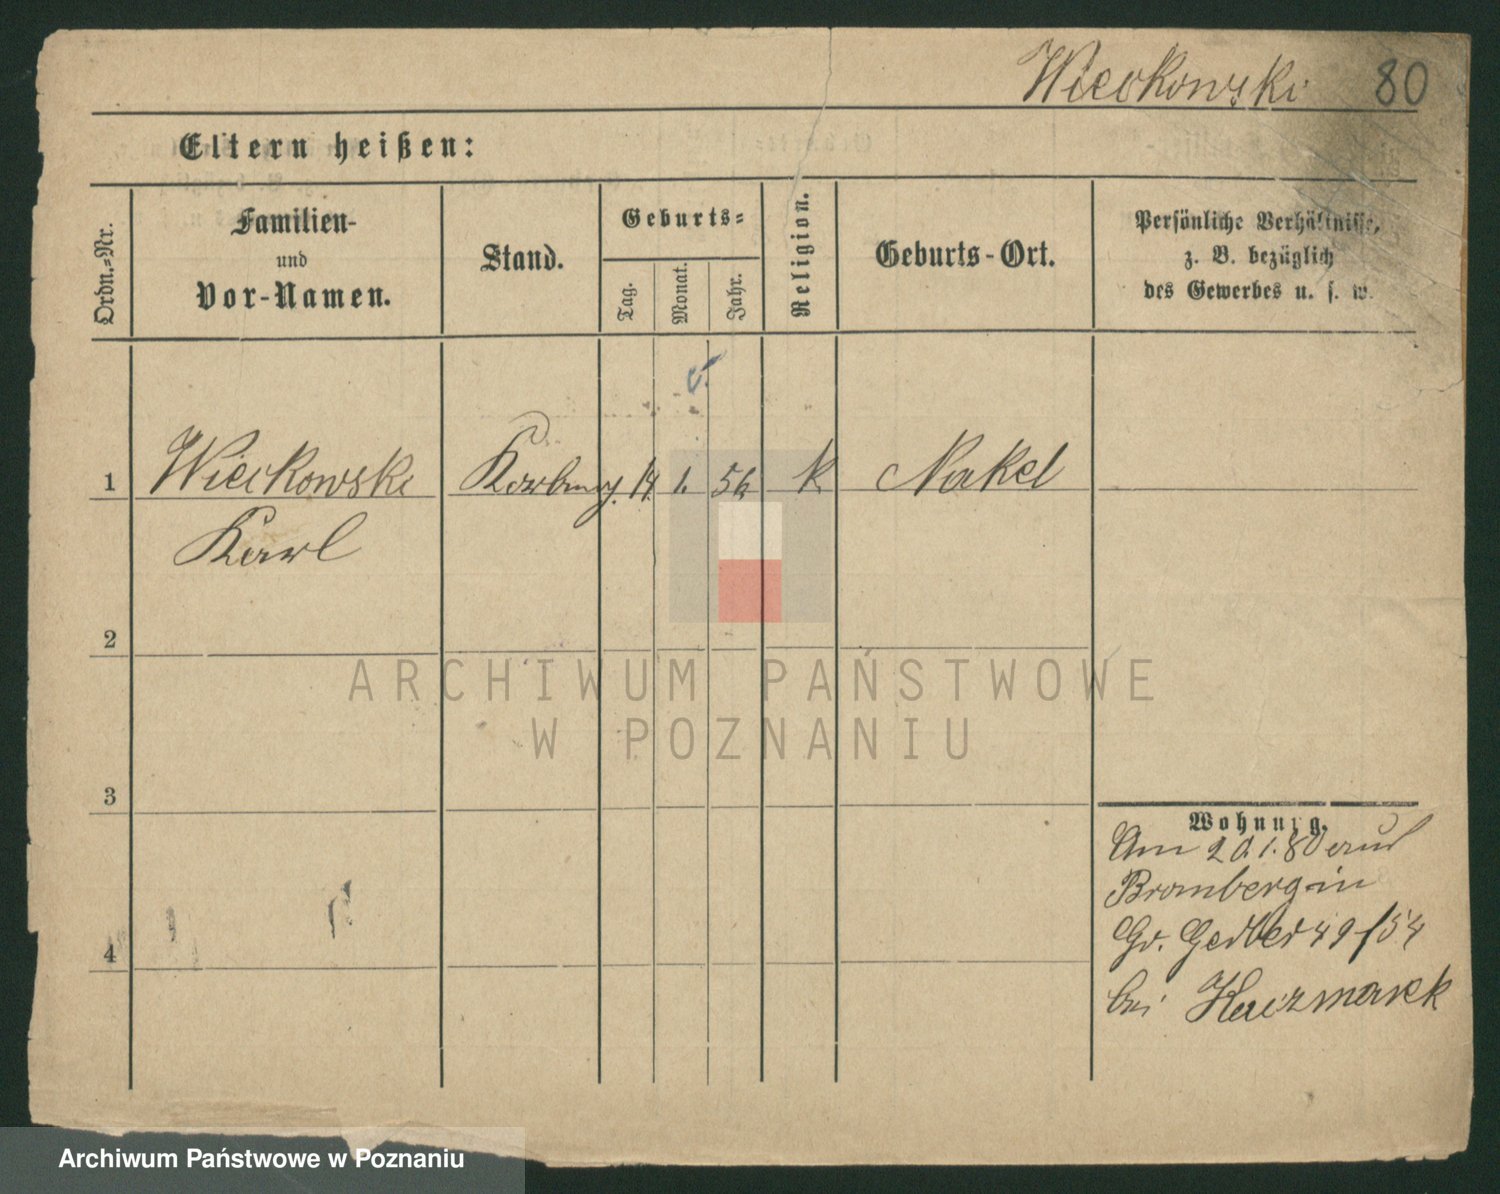 Wieckowski 80
Eltern heißen:
Ordn.-Nr.
Familien-
und
Vor-Namen.
Stand.
Geburts-
Tag.
Monat.
Jahr.
Religion.
Geburts-Ort.
Persönliche Verhältnisse,
z. B. bezüglich
des Gewerbes u. s. w.
1 Wieckowski 1. k. Nakel
Karl
2
3
4
Wohnung.
Am 20.1.80 aus
Bromberg in
Gr. Gerber 49/54
bei Kaczmarek
ARCHIWUM PAŃSTWOWE
W POZNANIU
Archiwum Państwowe w Poznaniu